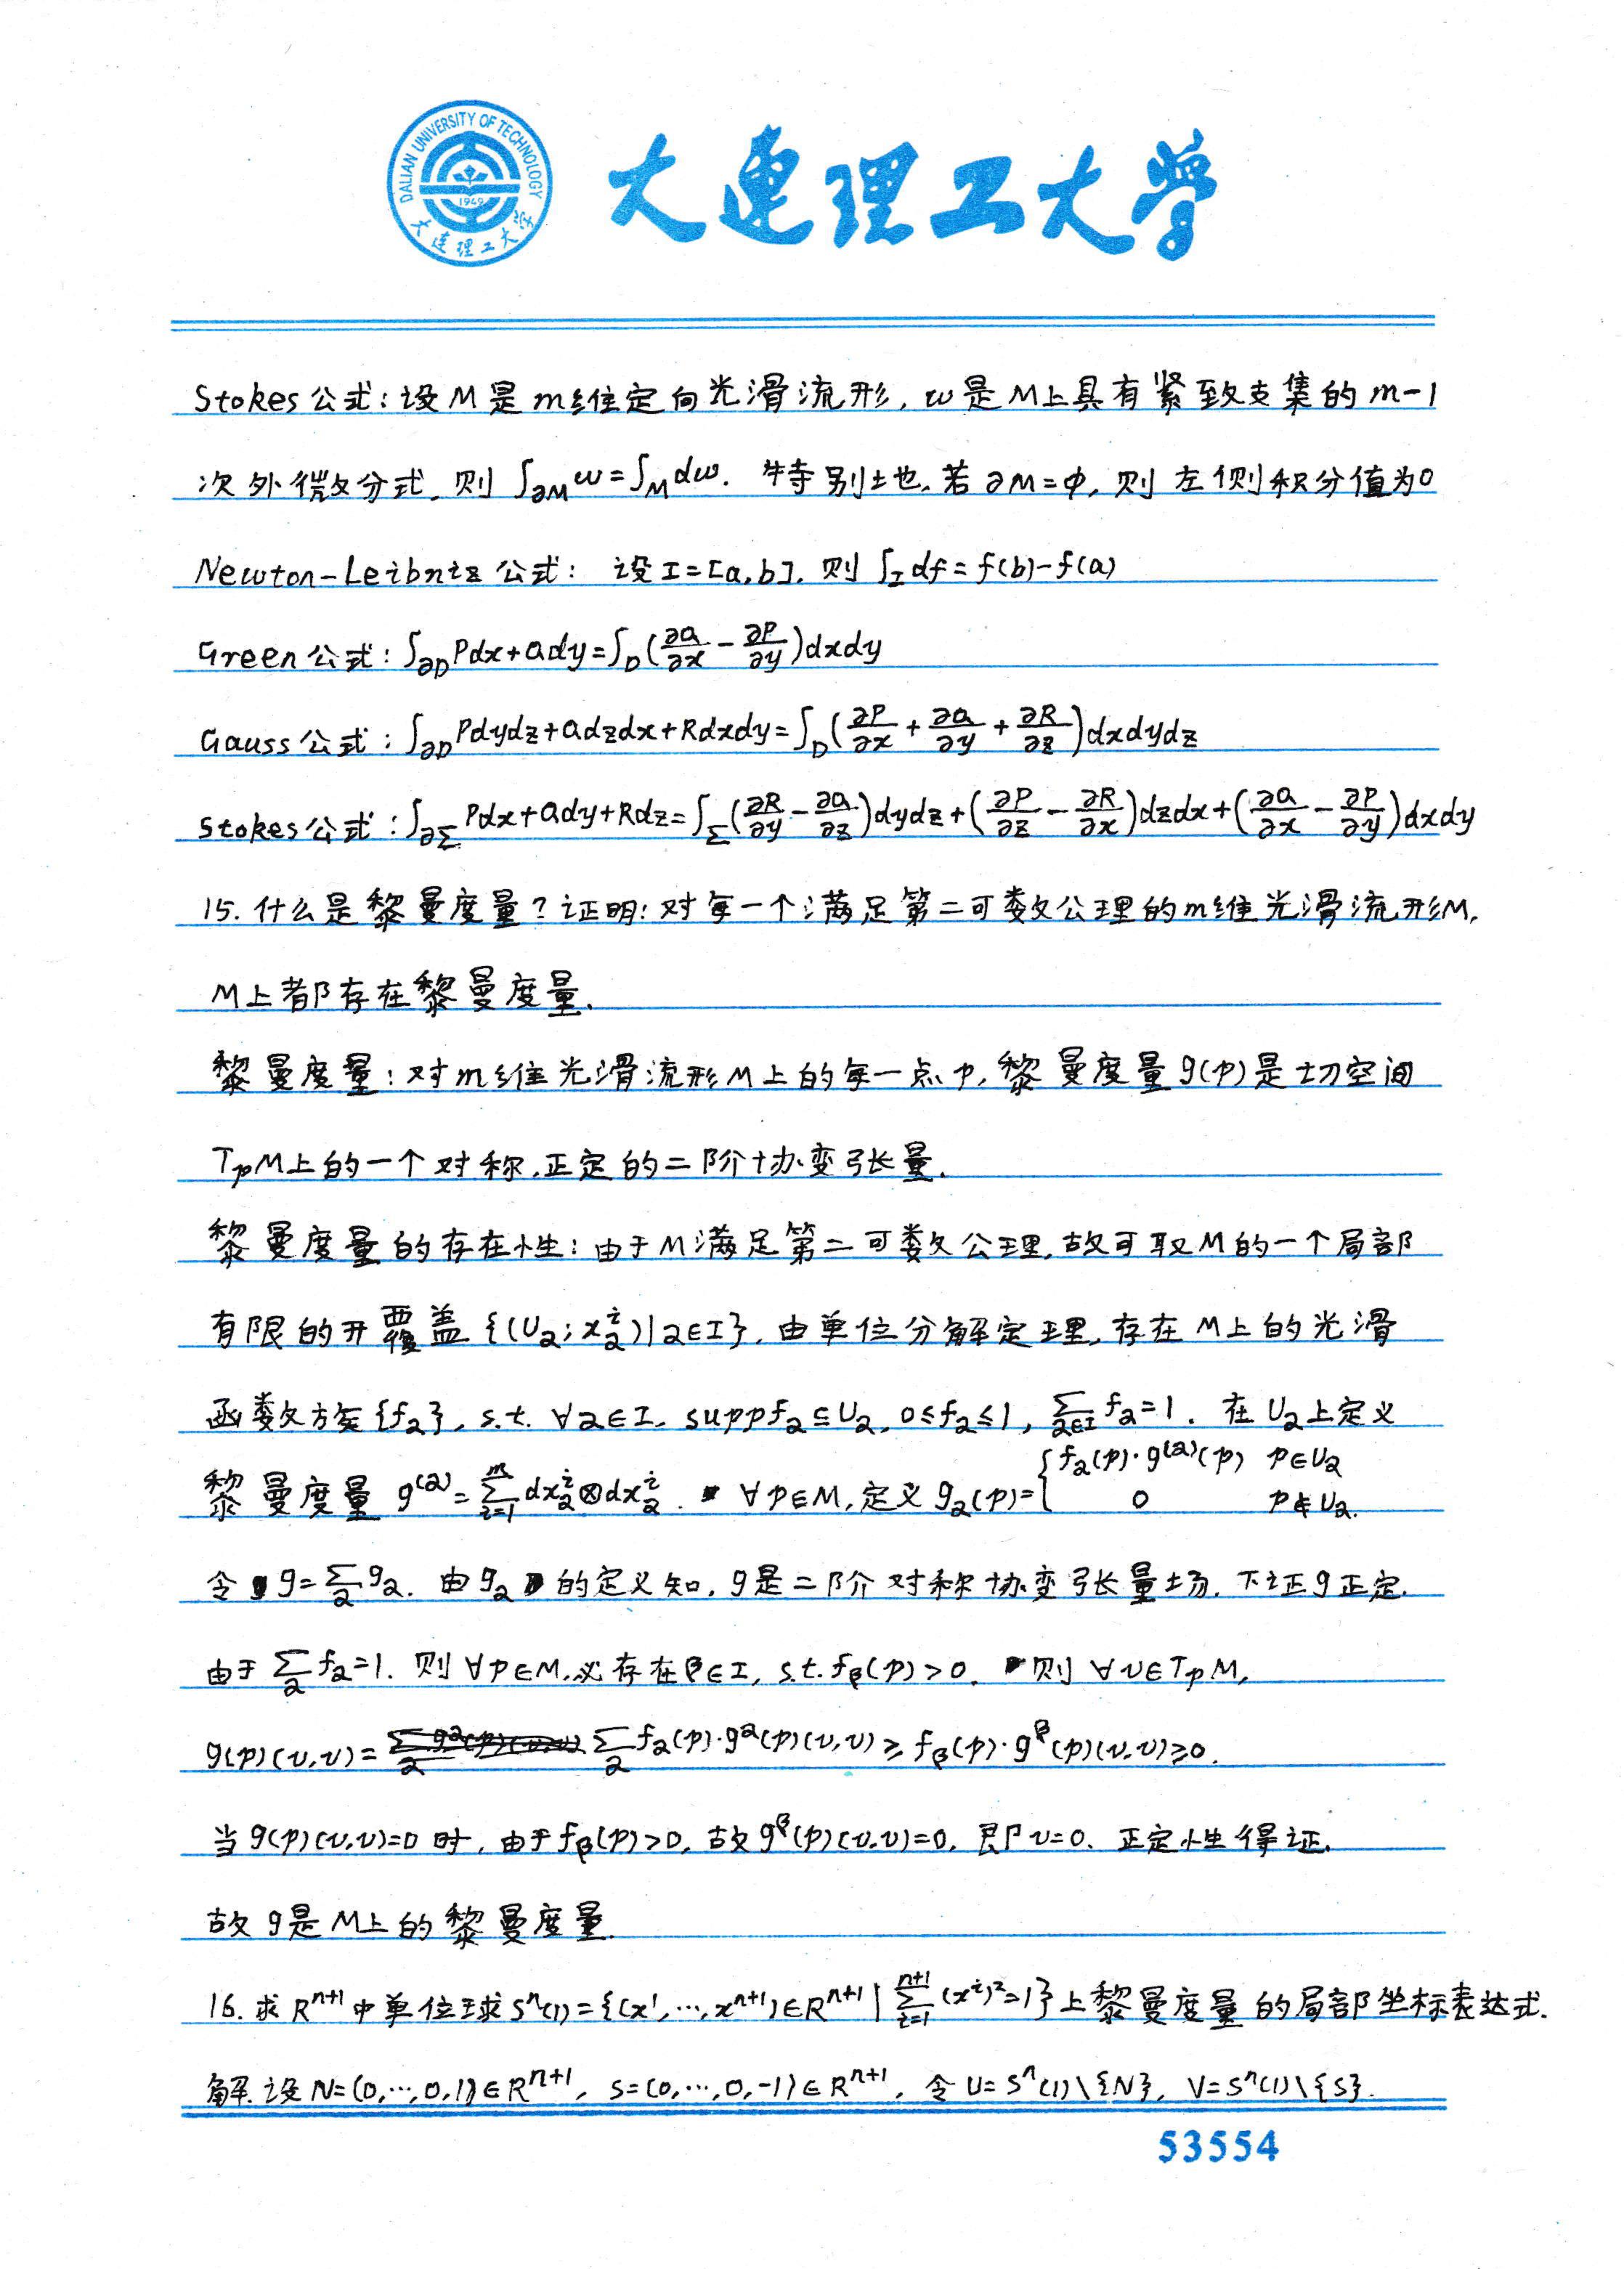 DALIAN UNIVERSITY OF TECHNOLOGY
1949
大连理工大学
大連理工大学
Stokes公式：设M是m维定向光滑流形，w是M上具有紧致支集的m-1
次外微分式，则 ∫_{∂M} w=∫_M dw. 特别地，若∂M=φ，则左侧积分值为0
Newton-Leibniz公式： 设I=[a,b]，则 ∫_I df=f(b)-f(a)
Green公式：∫_{∂D} Pdx+Qdy=∫_D(∂Q/∂x - ∂P/∂y)dxdy
Gauss公式：∫_{∂D} Pdydz+Qdzdx+Rdxdy=∫_D(∂P/∂x + ∂Q/∂y + ∂R/∂z)dxdydz
Stokes公式：∫_{∂Σ} Pdx+Qdy+Rdz=∫_Σ(∂R/∂y - ∂Q/∂z)dydz+(∂P/∂z - ∂R/∂x)dzdx+(∂Q/∂x - ∂P/∂y)dxdy
15. 什么是黎曼度量？证明：对每一个满足第二可数公理的m维光滑流形M，
M上都存在黎曼度量.
黎曼度量：对m维光滑流形M上的每一点p，黎曼度量g(p)是切空间
T_pM上的一个对称，正定的二阶协变张量.
黎曼度量的存在性：由于M满足第二可数公理，故可取M的一个局部
有限的开覆盖{(U_α; x_α^i)|α∈I}，由单位分解定理，存在M上的光滑
函数族{f_α}，s.t. ∀α∈I，supp f_α⊆U_α，0≤f_α≤1，∑_{α∈I} f_α=1. 在U_α上定义
黎曼度量 g^{(α)}=∑_{i=1}^m dx_α^i⊗dx_α^i. ∀p∈M，定义g_α(p)={f_α(p)·g^{(α)}(p) p∈U_α; 0 p∉U_α.
令g=∑_α g_α. 由g_α的定义知，g是二阶对称协变张量场. 下证g正定.
由于∑_α f_α=1. 则∀p∈M，必存在β∈I，s.t. f_β(p)>0. 则∀v∈T_pM，
g(p)(v,v)=∑_α f_α(p)·g^α(p)(v,v)≥f_β(p)·g^β(p)(v,v)≥0.
当g(p)(v,v)=0时，由于f_β(p)>0，故g^β(p)(v,v)=0，即v=0. 正定性得证.
故g是M上的黎曼度量.
16. 求R^{n+1}中单位球S^n(1)={(x^1,…,x^{n+1})∈R^{n+1}|∑_{i=1}^{n+1}(x^i)^2=1}上黎曼度量的局部坐标表达式.
解. 设N=(0,…,0,1)∈R^{n+1}，S=(0,…,0,-1)∈R^{n+1}，令U=S^n(1)\{N}，V=S^n(1)\{S}.
53554